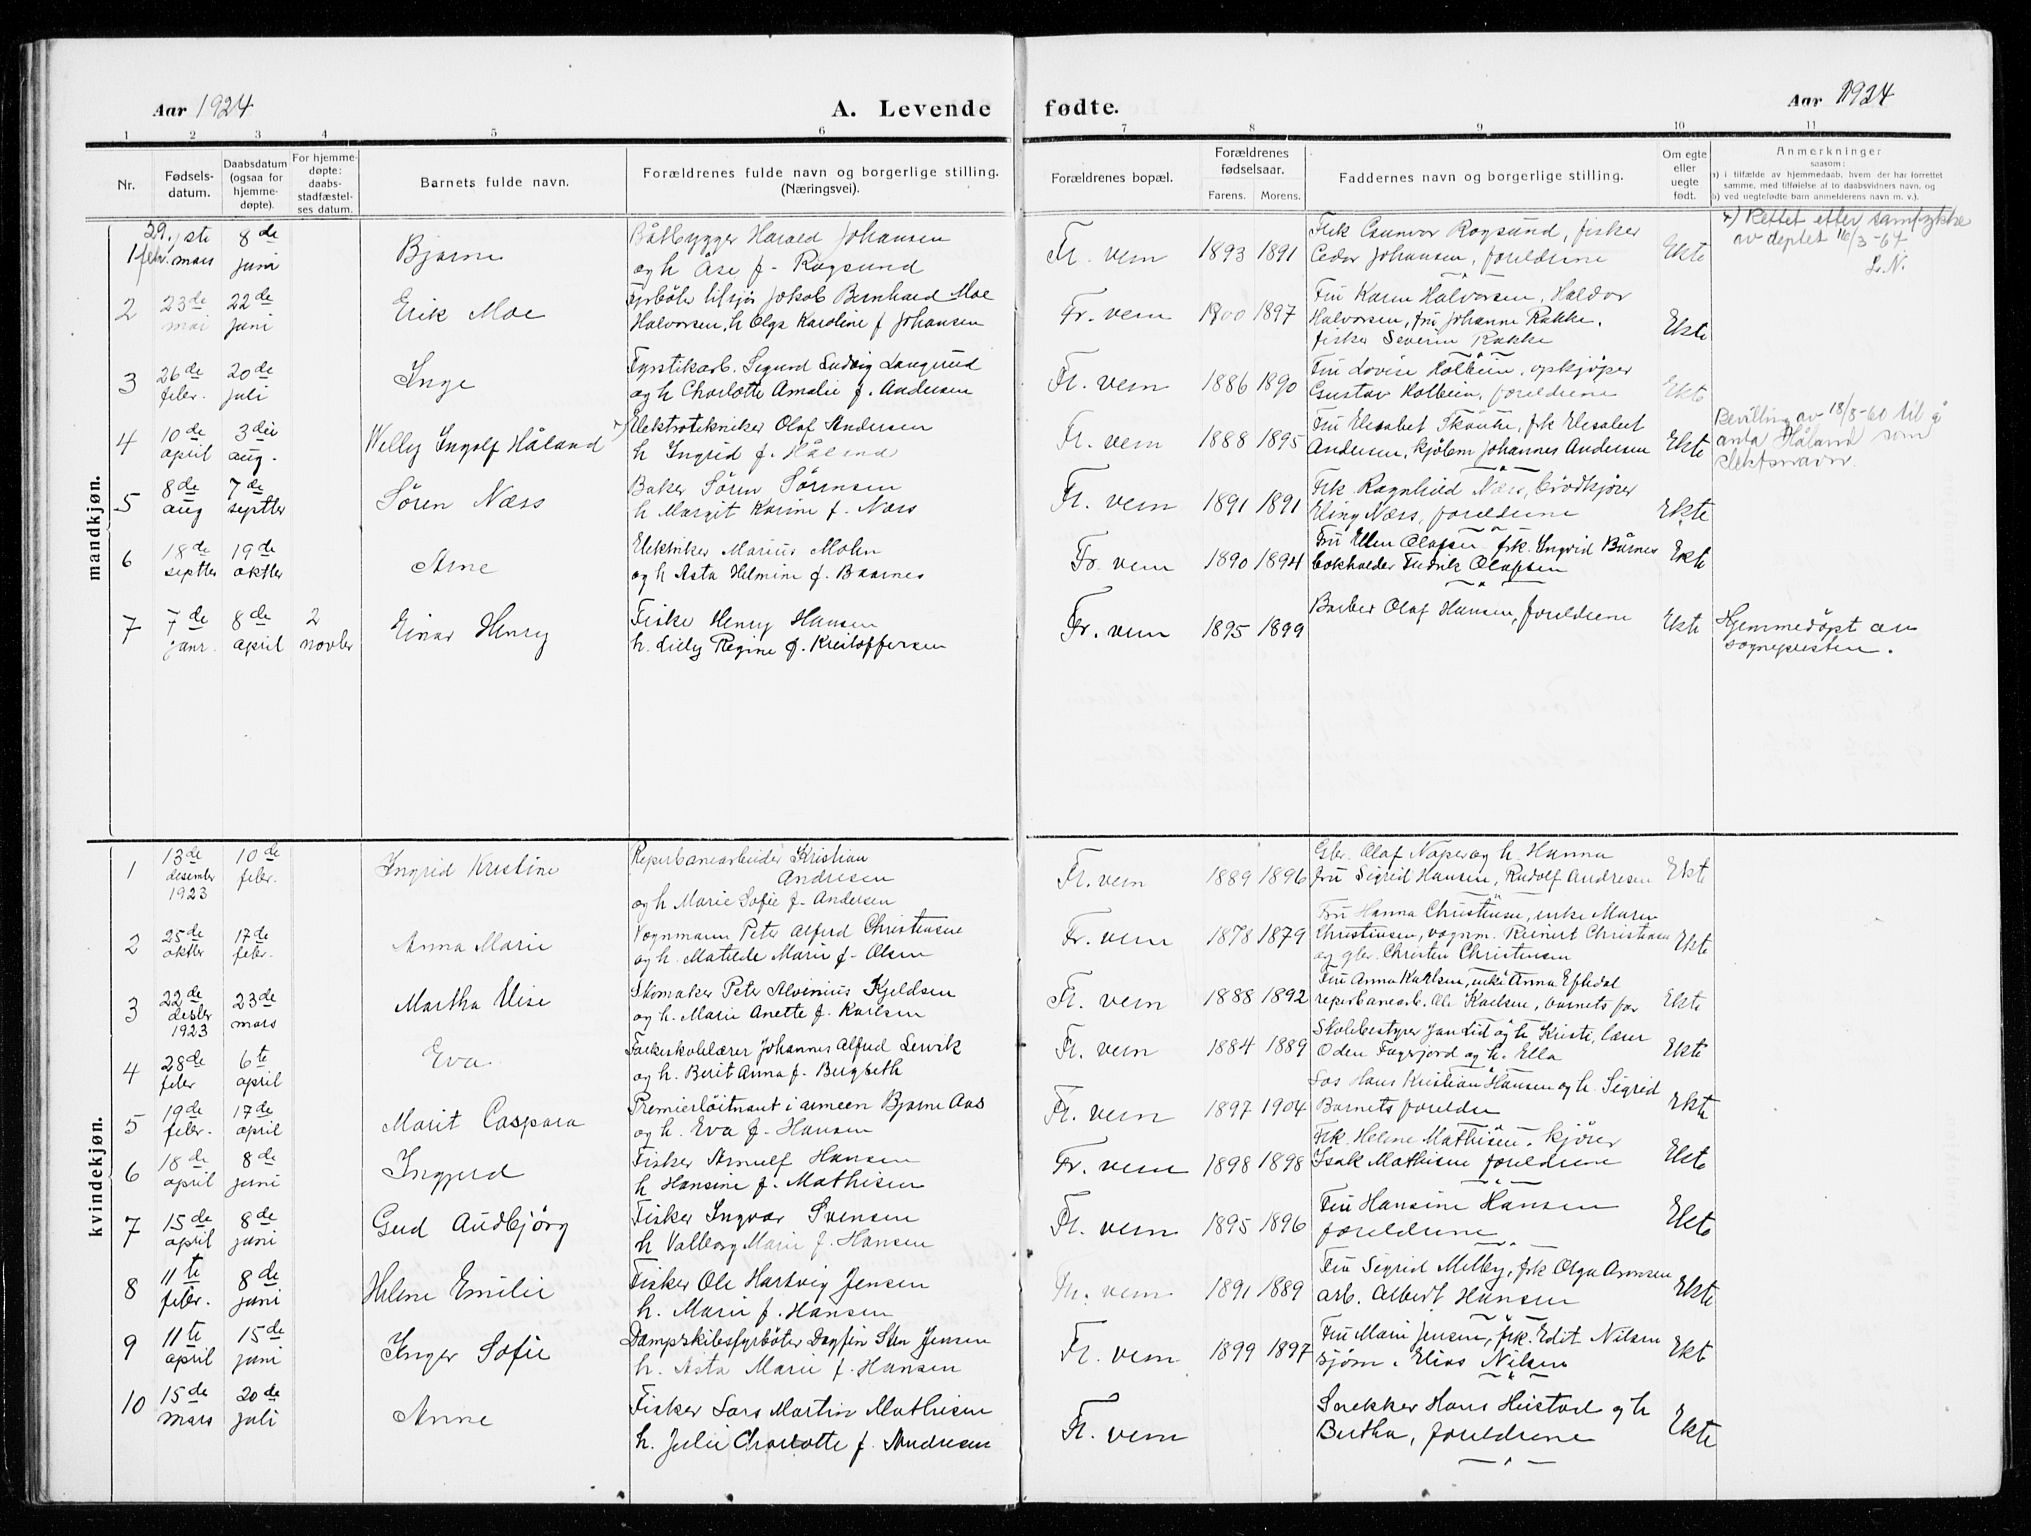 Aar 1924
A. Levende fødte.
Aar 1924
1 2 3 4 5 6 7 8 9 10 11
Nr.
Fødsels-
datum.
Daabsdatum
(ogsaa for
hjemme-
døpte).
For hjemme-
døpte:
daabs-
stadfæstel-
ses datum.
Barnets fulde navn.
Forældrenes fulde navn og borgerlige stilling.
(Næringsvei).
Forældrenes bopæl.
Forældrenes
fødselsaar.
Farens. Morens.
Faddernes navn og borgerlige stilling.
Om egte
eller
uegte
født.
Anmerkninger
saasom:
a) i tilfælde av hjemmedaab, hvem der har forrettet
samme, med tilføielse av to daabsvidners navn, og
b) ved uegtefødte barn anmelderens navn m. v.).
mandkjøn.
1 29. febr. mars 8de juni Bjarne
Båtbygger Harald Johansen
og h Åse f. Rogsund
Fr. vern 1893 1891
Frk Gunvor Rogsund, fisker
Johansen, foreldrene
Ekte
x) Rettet etter samtykke
av deptet 16/3-64
L.N.
2 23de mai 22de juni Erik Moe
Fyrbøter Jakob Bernhard Moe
Halvorsen, h Olga Karoline f Johansen
Fr. vern 1900 1897
Fru Karen Halvorsen, Haldor
Halvorsen, fru Johanne Rakke,
fisker Severin Rakke
Ekte
3 26de febr. 20de juli Inge
Fyrstikarb. Sigurd Ludvig Langrud
og h Charlotte Amalie f. Andersen
Fr. vern 1886 1890
Fru Lovise Kolbein, opkjøper
Gustav Kolbein, foreldrene
Ekte
4 10de april 3die aug. Willy Ingolf Håland x)
Elektrotekniker Olaf Andersen
h Ingrid f. Håland
Fr. vern 1888 1895
Fru Elisabet frk Elisabet
Andersen, kjøbm Johannes Andersen
Ekte
Bevilling av 18/8-60 til å
anta Håland som
slektsnavn.
5 8de aug 7de septbr Søren Næss
Baker Søren Sørensen
h Margit Karine f. Næss
Fr. vern 1891 1891
Frk. Ragnhild Næss, brødkjører
Næss, foreldrene
Ekte
6 18de septbr 19de oktbr Arne
Elektriker Marius Mohn
og h Asta Helmine f. Baarnes
Fr. vern 1890 1894
Fru Ellen Olafsen frk. Ingrid Bårnes
bokholder Fredrik Olafsen
Ekte
7 7de janr. 8de april 2 novbr Einar Henry
Fisker Henry Hansen
h. Lilly Regine f. Kristoffersen
Fr. vern 1895 1899
Barber Olaf Hansen, foreldrene
Ekte
Hjemmedøpt av
sognepresten.
kvindekjøn.
1 13de desember 1923 10de febr. Ingrid Kristine
Reperbanearbeider Kristian
Andresen
og h Marie Sofie f. Andersen
Fr. vern 1889 1896
Gbr. Olaf Naper og h. Hanna
fru Sigrid Hansen, Rudolf Andresen
Ekte
2 25de oktbr 17de febr. Anna Marie
Vognmann Peter Alfred Christensen
og h. Matilde Marie f. Olsen
Fr. vern 1878 1879
Fru Hanna Christensen, enke Maren
Christensen, vognm. Reinert Christensen
og gbr. Christen Christensen
Ekte
3 22de desbr 1923 23de mars Martha Elise
Skomaker Peter Alvinius Kjeldsen
og h. Marie Anette f. Karlsen
Fr. vern 1888 1892
Fru Anna Karlsen, enke Anna Eftedal
reperbanearb. Ole Karlsen, barnets far
Ekte
4 28de febr 6te april Eva
Folkeskolelærer Johannes Alfred Lervik
og h. Berit Anna f. Bergseth
Fr. vern 1884 1889
Skolebestyrer Jan Lid og h. Kirsti, lærer
Oden Fagerjord og h. Ella
Ekte
5 19de febr. 17de april Marit Caspara
Premierløitnant i armeen Bjarne Aas
og h. Eva f. Hansen
Fr. vern 1897 1904
Los Hans Kristian Hansen og h. Sigrid
Barnets foreldre
Ekte
6 18de april 8de juni Ingjerd
Fisker Arnulf Hansen
h Hansine f. Mathisen
Fr. vern 1898 1898
Frk. Helene Mathisen. kjører
Isak Mathisen foreldrene
Ekte
7 15de april 8de juni Gud Audbjørg
Fisker Ingvar Svensen
h Valborg Marie f. Hansen
Fr. vern 1895 1896
Fru Hansine Hansen
foreldrene
Ekte
8 11te febr. 8de juni Helene Emilie
Fisker Ole Hartvig Jensen
h. Marie f. Hansen
Fr. vern 1891 1889
Fru Sigrid Melby, frk Olga Aronsen
arb. Albert Hansen
Ekte
9 11te april 15de juni Inger Sofie
Dampskibsfyrbøter Dagfin Sten Jensen
h. Asta Marie f. Hansen
Fr. vern 1899 1897
Fru Marie Jensen, frk. Edit Nilsen
sjøm. Elias Nilsen
Ekte
10 15de mars 20de juli Anne
Fisker Lars Martin Mathisen
h. Julie Charlotte f. Andresen
Fr. vern
Snekker Hans Heistad og h
Bertha, foreldrene
Ekte